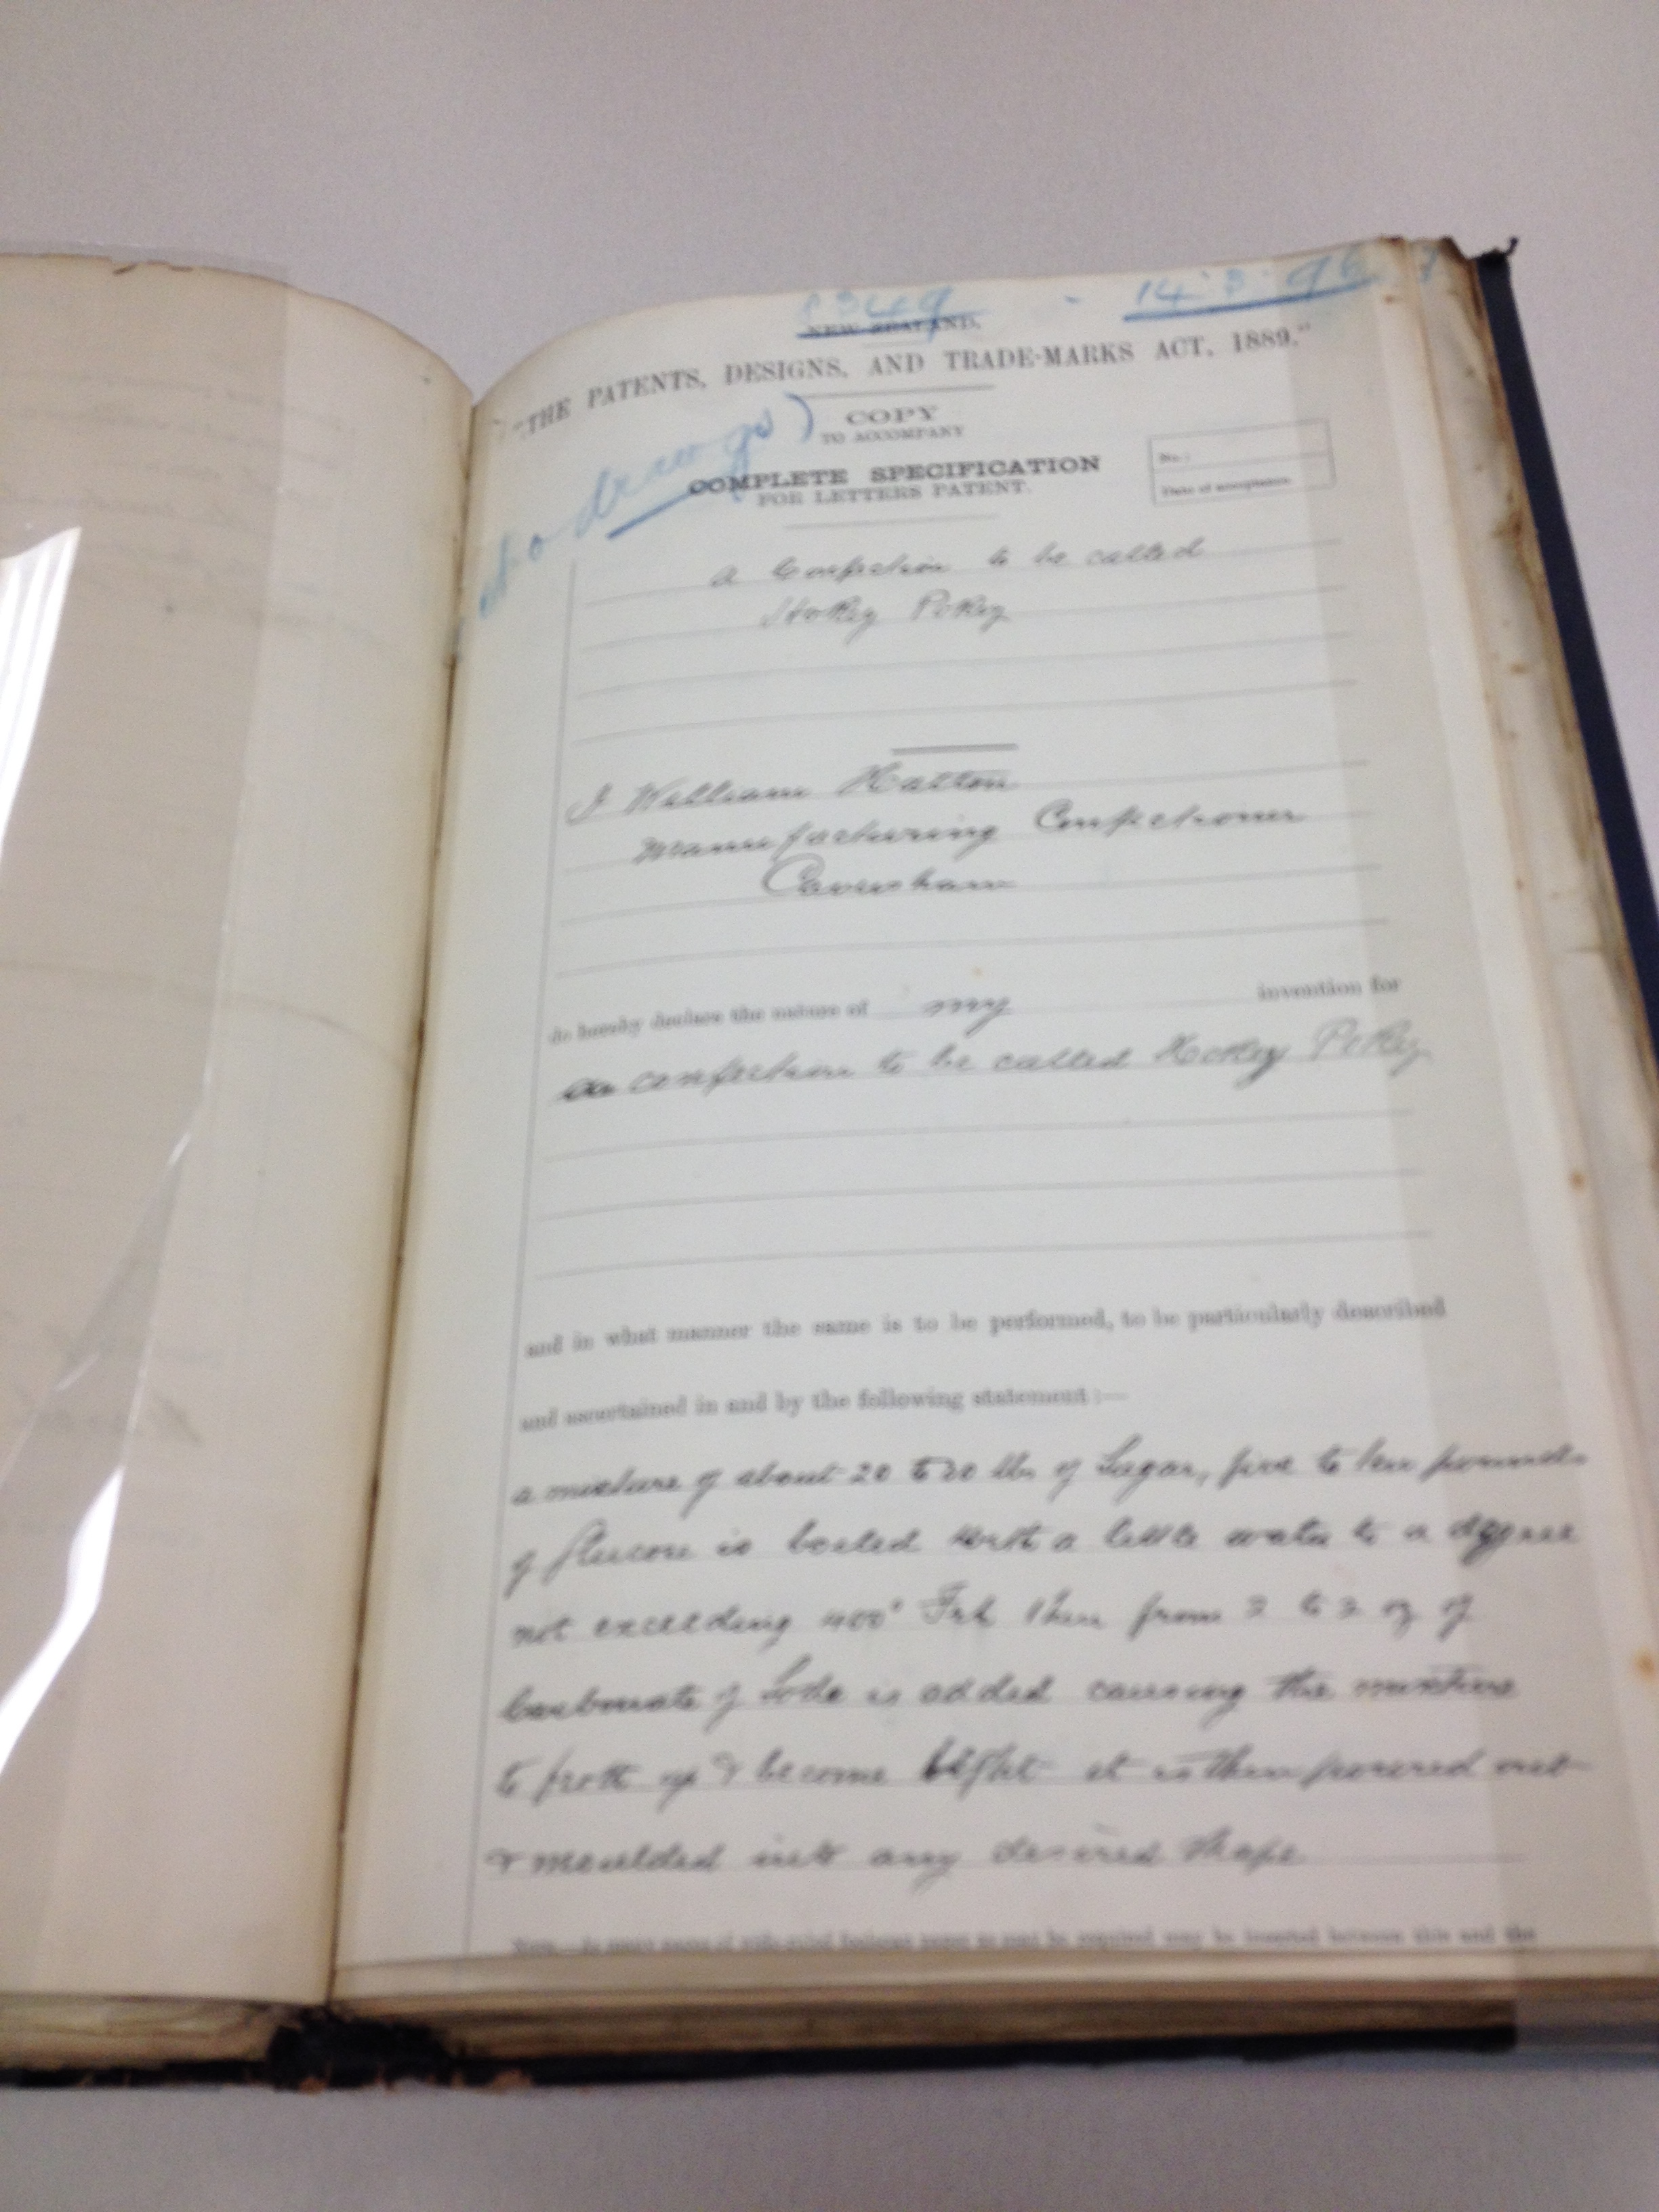 8349 - 14.3.96
NEW ZEALAND.
"THE PATENTS, DESIGNS, AND TRADE-MARKS ACT, 1889."
drawings)
COPY
TO ACCOMPANY
COMPLETE SPECIFICATION
FOR LETTERS PATENT.
No. :
Date of acceptance
a Confection to be called
Hokey Pokey
I William Hatton
Manufacturing Confectioner
Caversham
do hereby declare the nature of my invention for
confection to be called Hokey Pokey
and in what manner the same is to be performed, to be particularly described
and ascertained in and by the following statement :—
a mixture of about 20 to lbs of Sugar, five to ten pounds
of Glucose is boiled with a little water to a degree
not exceeding 400° Frh then from to 3 oz of
Carbonate of Soda is added causing the mixture
to froth up & become light it is then poured out
& moulded into any desired shape
may be inserted between this and the